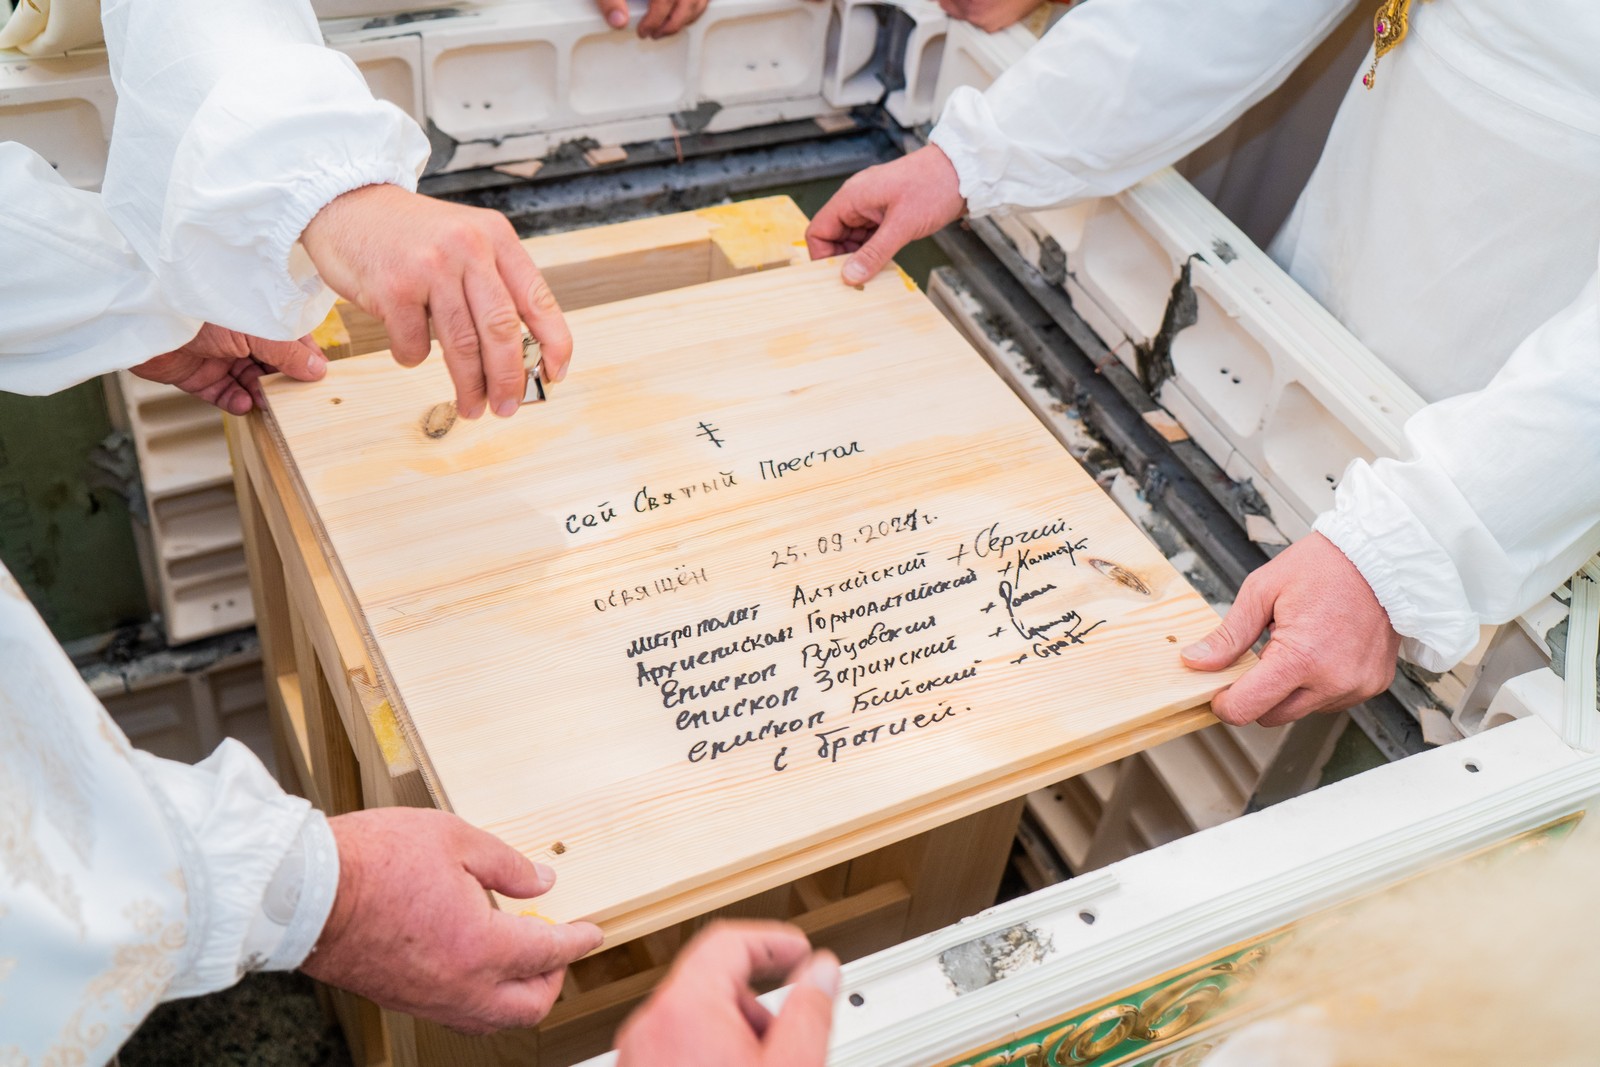 Сей Святый Престол
освящён 25.09.2021г.
митрополит Алтайский + Сергий.
Архиепископ Горноалтайский + Каллистрат
Епископ Рубцовский + Роман
епископ Заринский +
епископ Бийский + Серафим
с братией.